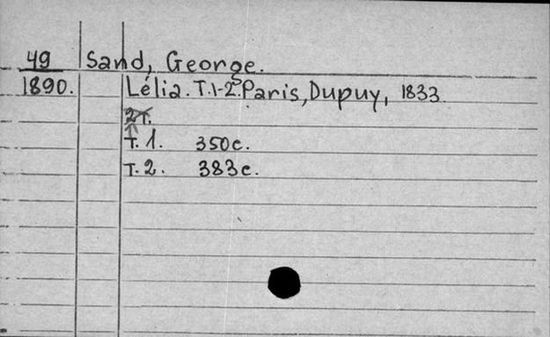 49 Sand, George.
1890. Lélia. T.1-2. Paris, Dupuy, 1833
2т.
Т. 1. 350с.
Т. 2. 383с.